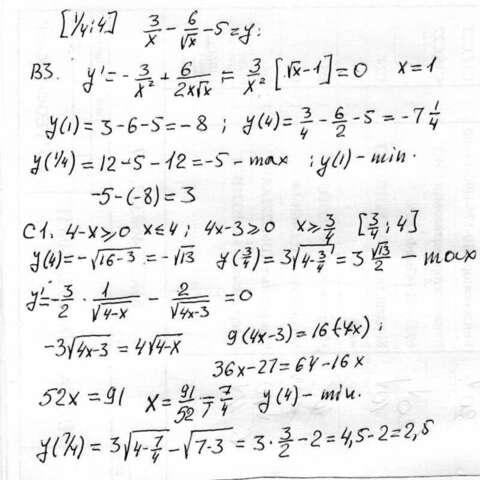 [1/4; 4] 3/x - 6/√x - 5 = y;
B3. y' = - 3/x² + 6/2x√x = 3/x² [√x - 1] = 0 x = 1
y(1) = 3 - 6 - 5 = -8 ; y(4) = 3/4 - 6/2 - 5 = -7 1/4
y(1/4) = 12 - 5 - 12 = -5 - max ; y(1) - min.
-5 - (-8) = 3
C1. 4-x ≥ 0 x ≤ 4 ; 4x-3 ≥ 0 x ≥ 3/4 [3/4 ; 4]
y(4) = -√(16-3) = -√13 y(3/4) = 3√(4 - 3/4) = 3 √13/2 - max
y' = -3/2 · 1/√(4-x) - 2/√(4x-3) = 0
-3√(4x-3) = 4√(4-x) 9(4x-3) = 16(4-x) ;
36x - 27 = 64 - 16x
52x = 91 x = 91/52 = 7/4 y(4) - min.
y(7/4) = 3√(4 - 7/4) - √(7-3) = 3 · 3/2 - 2 = 4,5 - 2 = 2,5